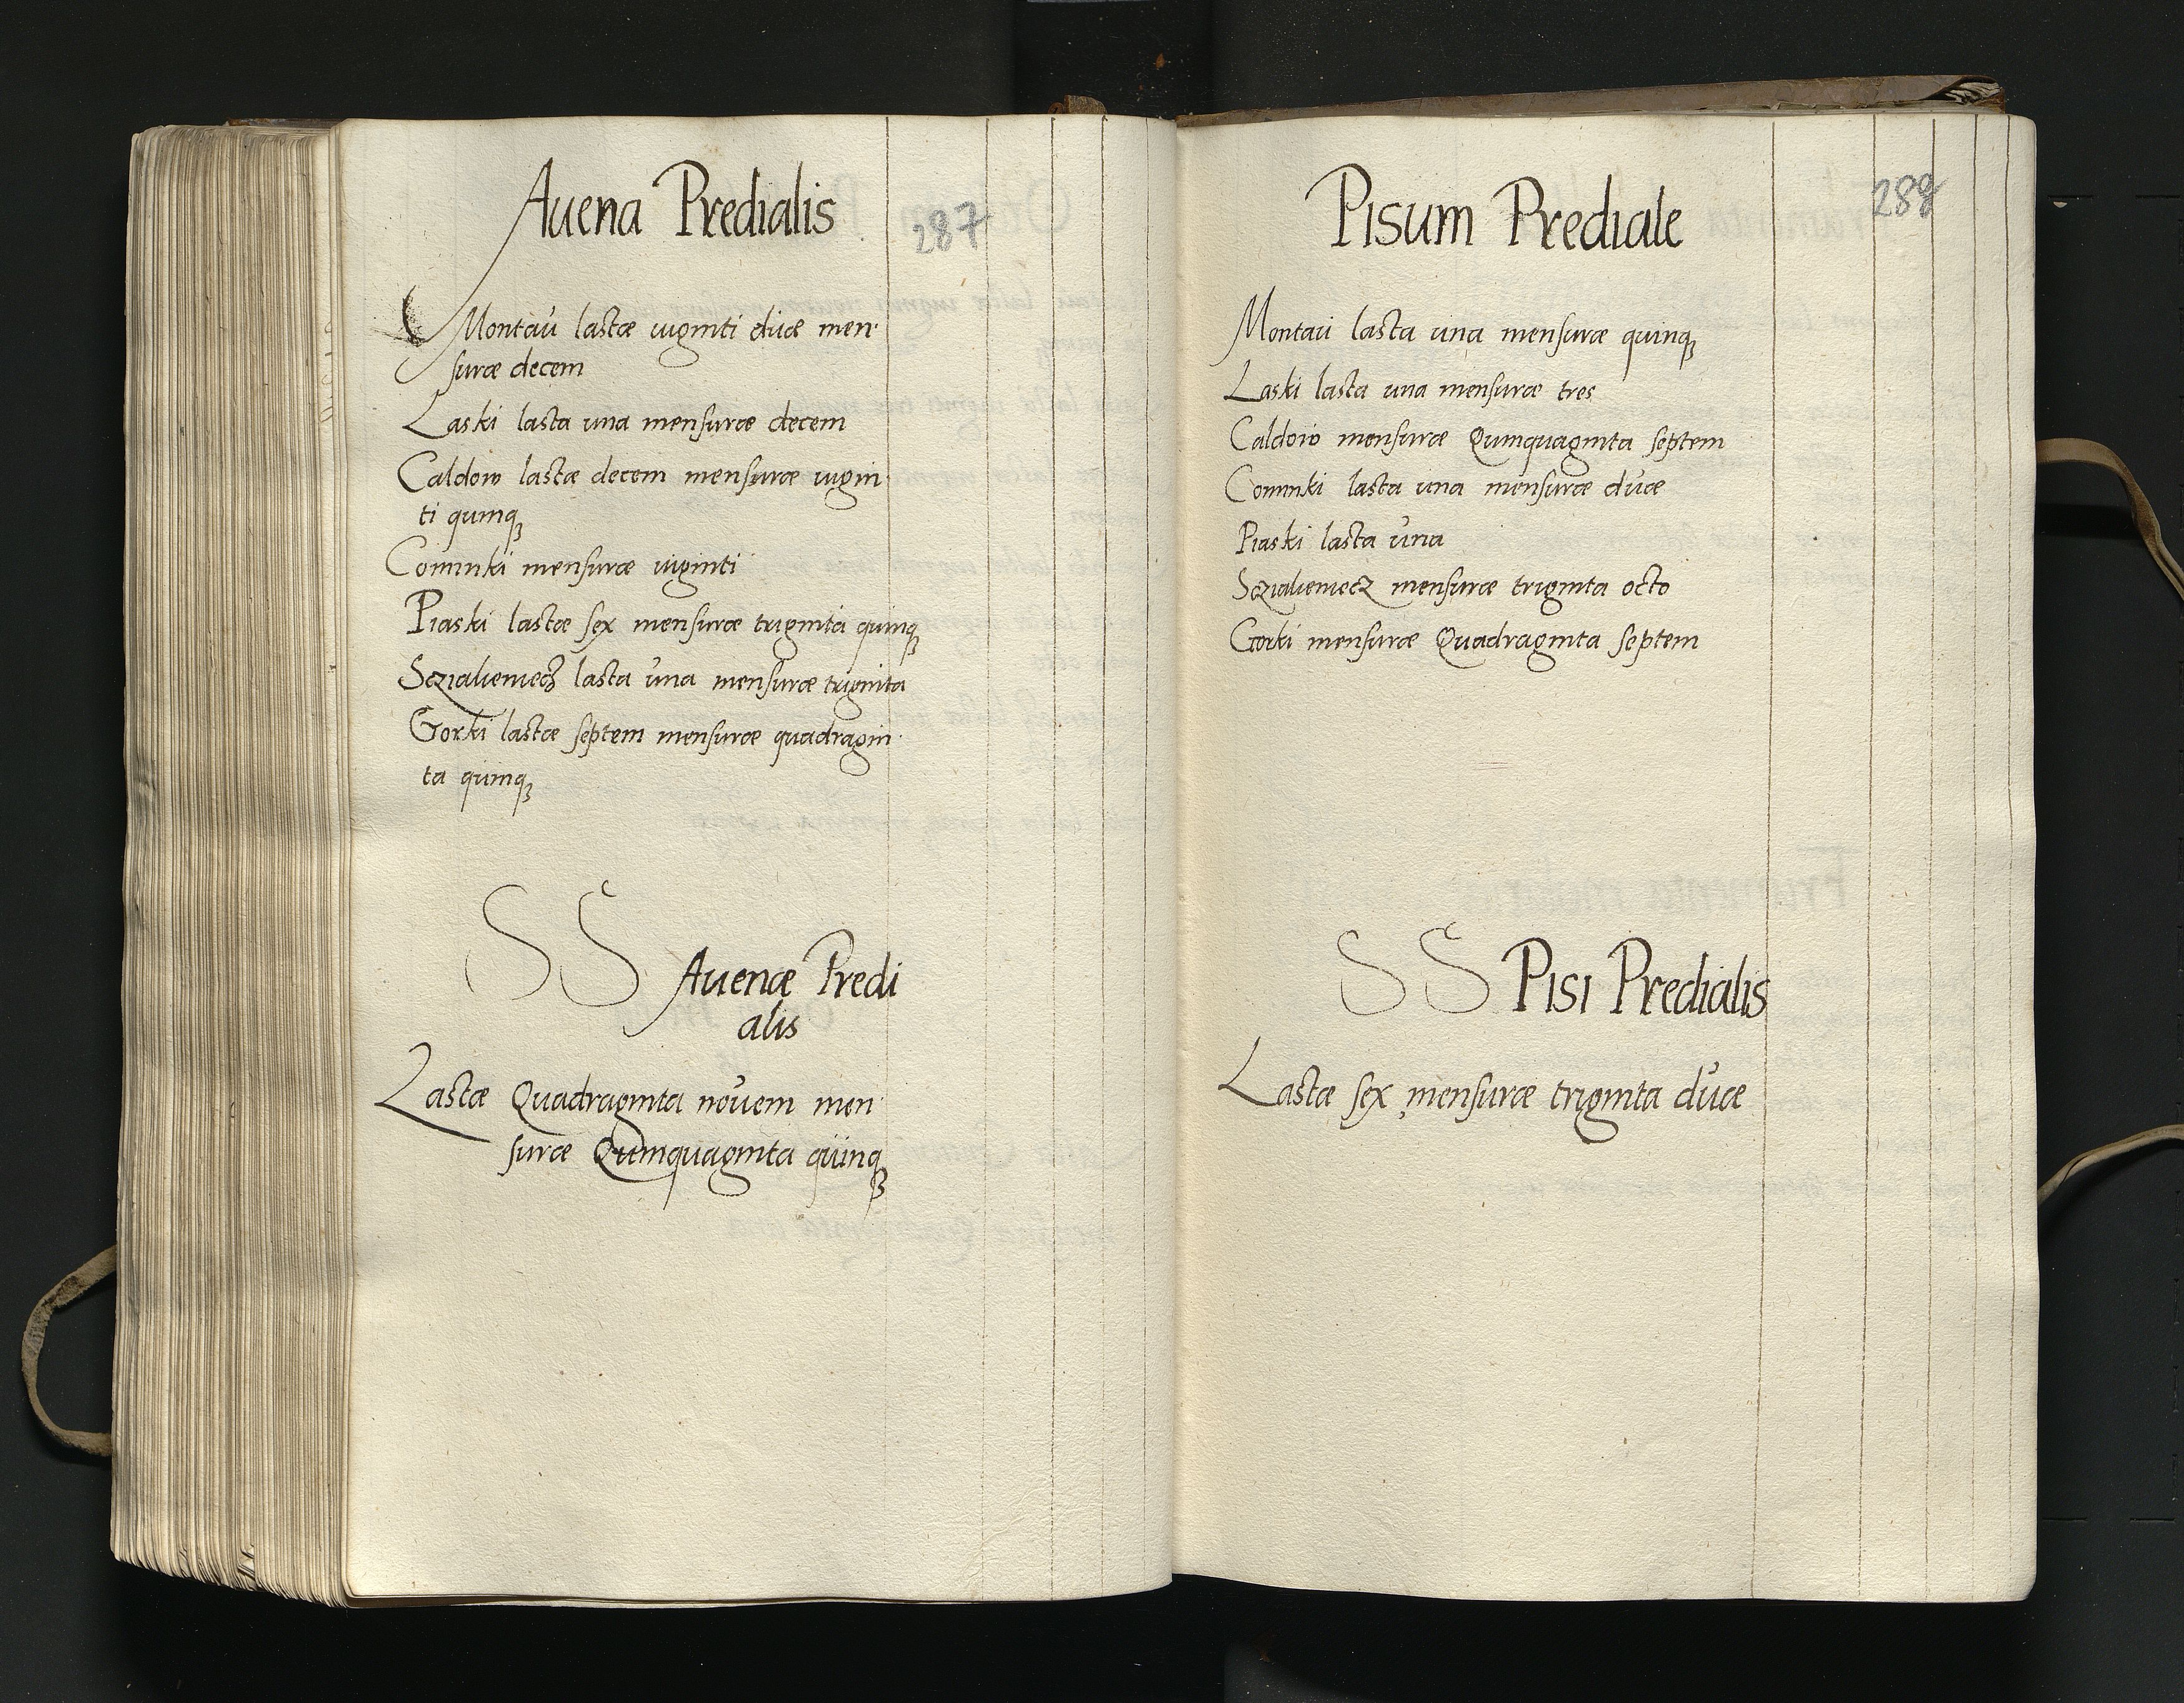 Auena Predialis
287
Montaú lastæ uiginti duæ men
suræ decem
Laski lasta una mensuræ decem
Caldow lastæ decem mensuræ uigin
ti quinqꝫ
Cominki mensuræ uiginti
Piaski lastæ sex mensuræ triginta quinqꝫ
Scziaueniecz lasta una mensuræ triginta
Gorki lastæ septem mensuræ quadragin
ta quinqꝫ
SS Auenæ Predi
alis
Lastæ Quadraginta nouem men
suræ Quinquaginta quinqꝫ
Pisum Prediale
288
Montau lasta una mensuræ quinqꝫ
Laski lasta una mensuræ tres
Caldow mensuræ Quinquaginta septem
Cominki lasta una mensuræ duæ
Piaski lasta una
Scziaueniecz mensuræ triginta octo
Gorki mensuræ Quadraginta septem
SS Pisi Predialis
Lastæ sex mensuræ triginta duæ